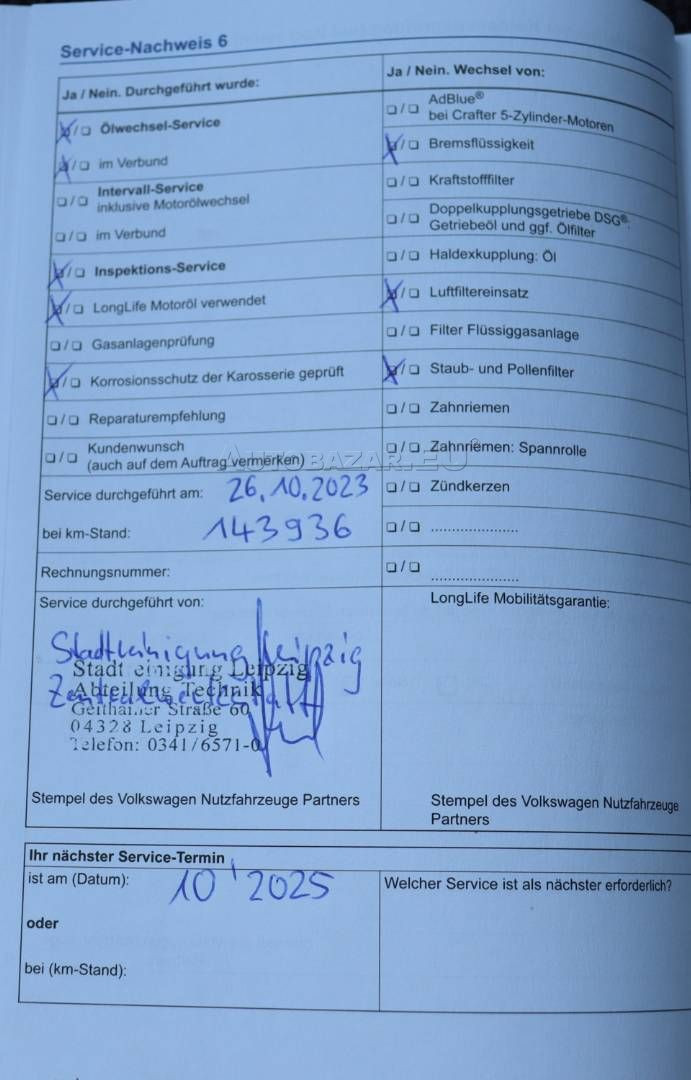 Service-Nachweis 6
Ja / Nein. Durchgeführt wurde:
❏ / ❏ Ölwechsel-Service
❏ / ❏ im Verbund
❏ / ❏ Intervall-Service
inklusive Motorölwechsel
❏ / ❏ im Verbund
❏ / ❏ Inspektions-Service
❏ / ❏ LongLife Motoröl verwendet
❏ / ❏ Gasanlagenprüfung
❏ / ❏ Korrosionsschutz der Karosserie geprüft
❏ / ❏ Reparaturempfehlung
❏ / ❏ Kundenwunsch
(auch auf dem Auftrag vermerken)
Service durchgeführt am: 26.10.2023
bei km-Stand: 143936
Rechnungsnummer:
Service durchgeführt von:
Stadtreinigung Leipzig
Zentralwerkstatt
Stadt einigung Leipzig
Abteilung Technik
Geithainer Straße 60
04328 Leipzig
Telefon: 0341/6571-0
Stempel des Volkswagen Nutzfahrzeuge Partners
Ja / Nein. Wechsel von:
❏ / ❏ AdBlue®
bei Crafter 5-Zylinder-Motoren
❏ / ❏ Bremsflüssigkeit
❏ / ❏ Kraftstofffilter
❏ / ❏ Doppelkupplungsgetriebe DSG®:
Getriebeöl und ggf. Ölfilter
❏ / ❏ Haldexkupplung: Öl
❏ / ❏ Luftfiltereinsatz
❏ / ❏ Filter Flüssiggasanlage
❏ / ❏ Staub- und Pollenfilter
❏ / ❏ Zahnriemen
❏ / ❏ Zahnriemen: Spannrolle
❏ / ❏ Zündkerzen
❏ / ❏ .....................
❏ / ❏ .....................
LongLife Mobilitätsgarantie:
Stempel des Volkswagen Nutzfahrzeuge
Partners
AUTOBAZAR.EU
Ihr nächster Service-Termin
ist am (Datum): 10 ' 2025
oder
bei (km-Stand):
Welcher Service ist als nächster erforderlich?